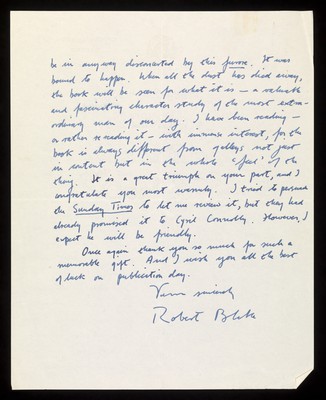 be in anyway disconcerted by this furore. It was
bound to happen. When all the dust has died away,
the book will be seen for what it is – a valuable
and fascinating character study of the most extra-
ordinary man of our day. I have been reading –
or rather re-reading it – with immense interest, for the
book is always different from galleys not just
in content but in the whole 'feel' of the
thing. It is a great triumph on your part, and I
congratulate you most warmly. I tried to persuade
the Sunday Times to let me review it, but they had
already promised it to Cyril Connolly. However, I
expect he will be friendly.
Once again thank you so much for such a
memorable gift. And I wish you all the best
of luck on publication day.
Yours sincerely
Robert Blake